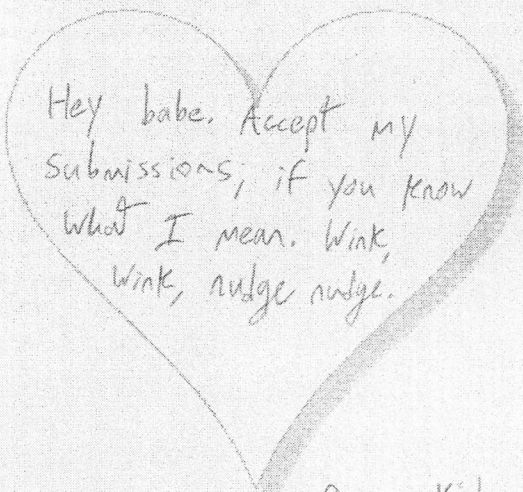 Hey babe. Accept my
submissions, if you know
what I mean. Wink,
Wink, nudge nudge.